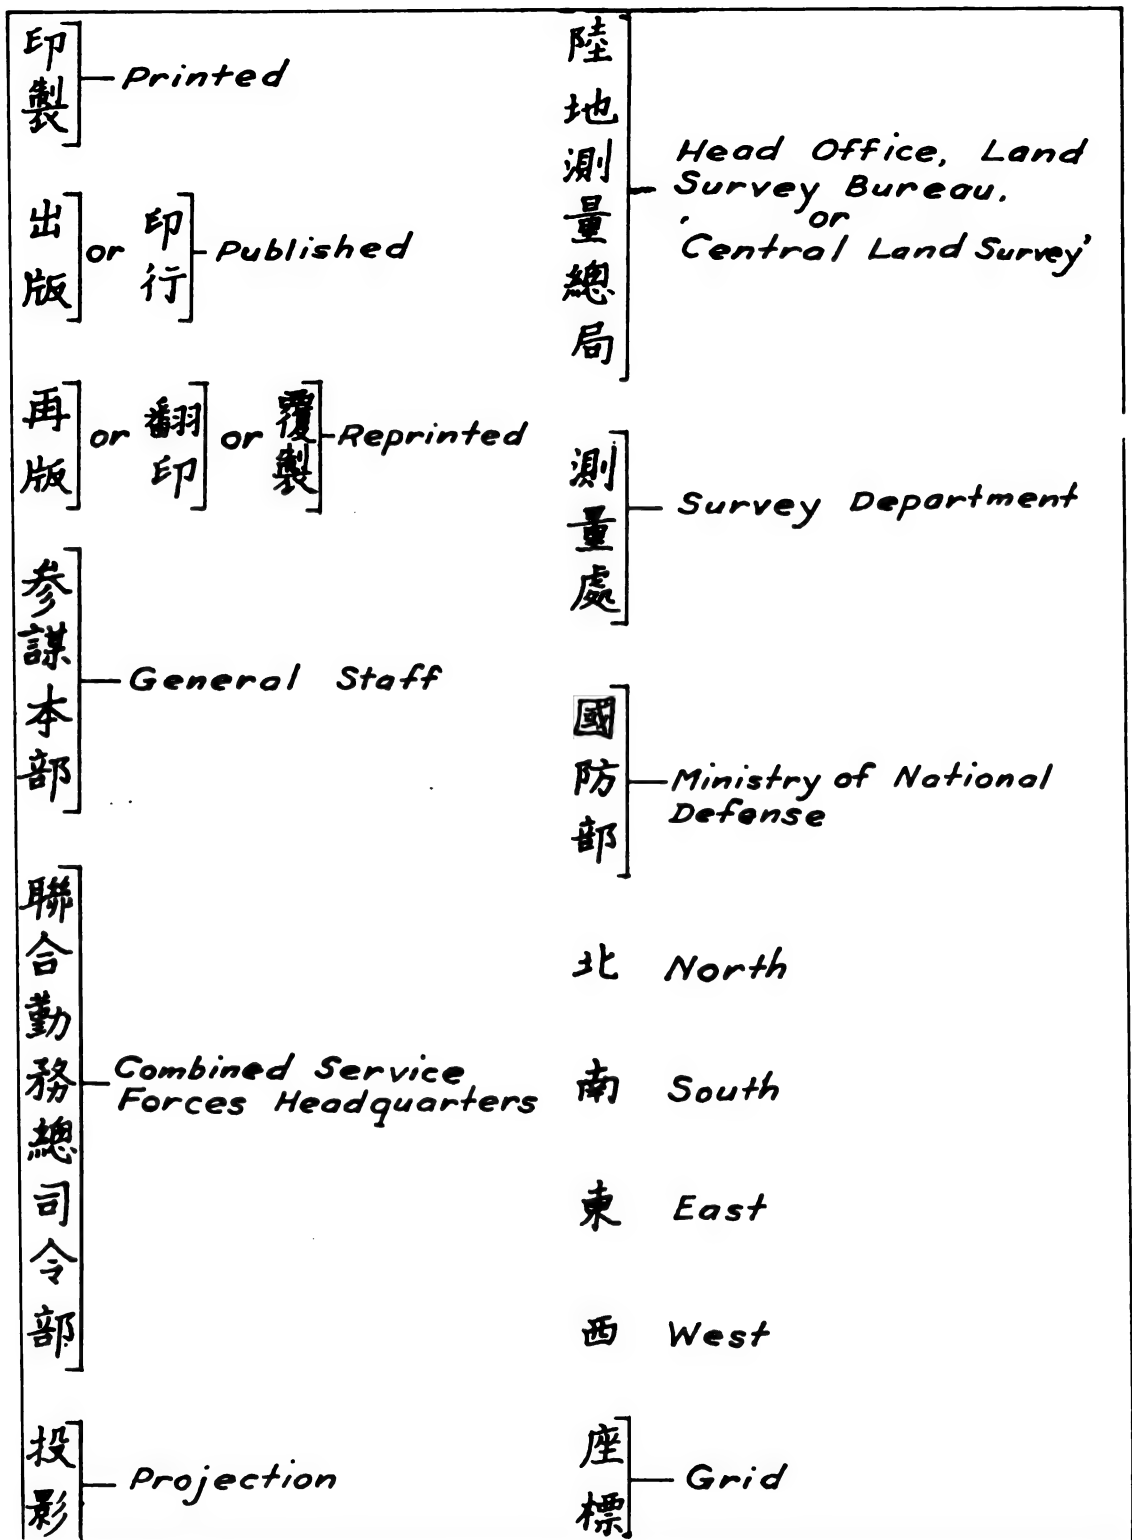 印製 Printed
出版 or 印行 Published
再版 or 翻印 or 覆製 Reprinted
参謀本部 General Staff
聯合勤務總司令部 Combined Service
Forces Headquarters
投影 Projection
陸地測量總局 Head Office, Land
Survey Bureau.
or
'Central Land Survey'
測量處 Survey Department
國防部 Ministry of National
Defense
北 North
南 South
東 East
西 West
座標 Grid